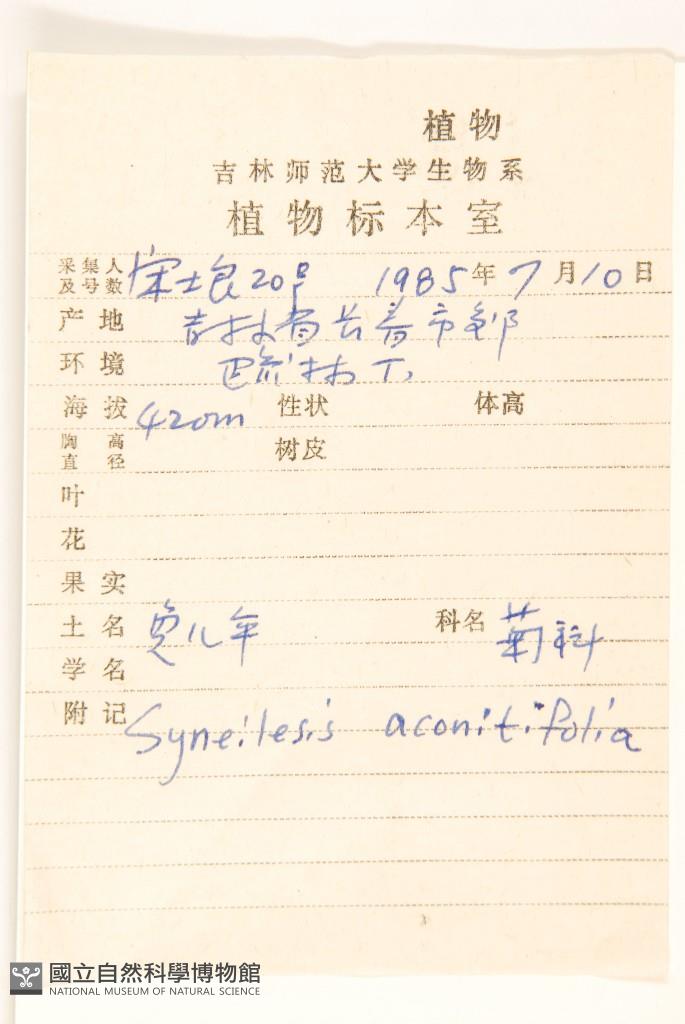 植物
吉林师范大学生物系
植物标本室
采集人及号数 宋士良20号 1985年7月10日
产地 吉林省长春市郊
环境 疏林下
海拔 420m 性状 体高
胸高直径 树皮
叶
花
果实
土名 兔儿伞 科名 菊科
学名
附记 Syneilesis aconitifolia
國立自然科學博物館
NATIONAL MUSEUM OF NATURAL SCIENCE